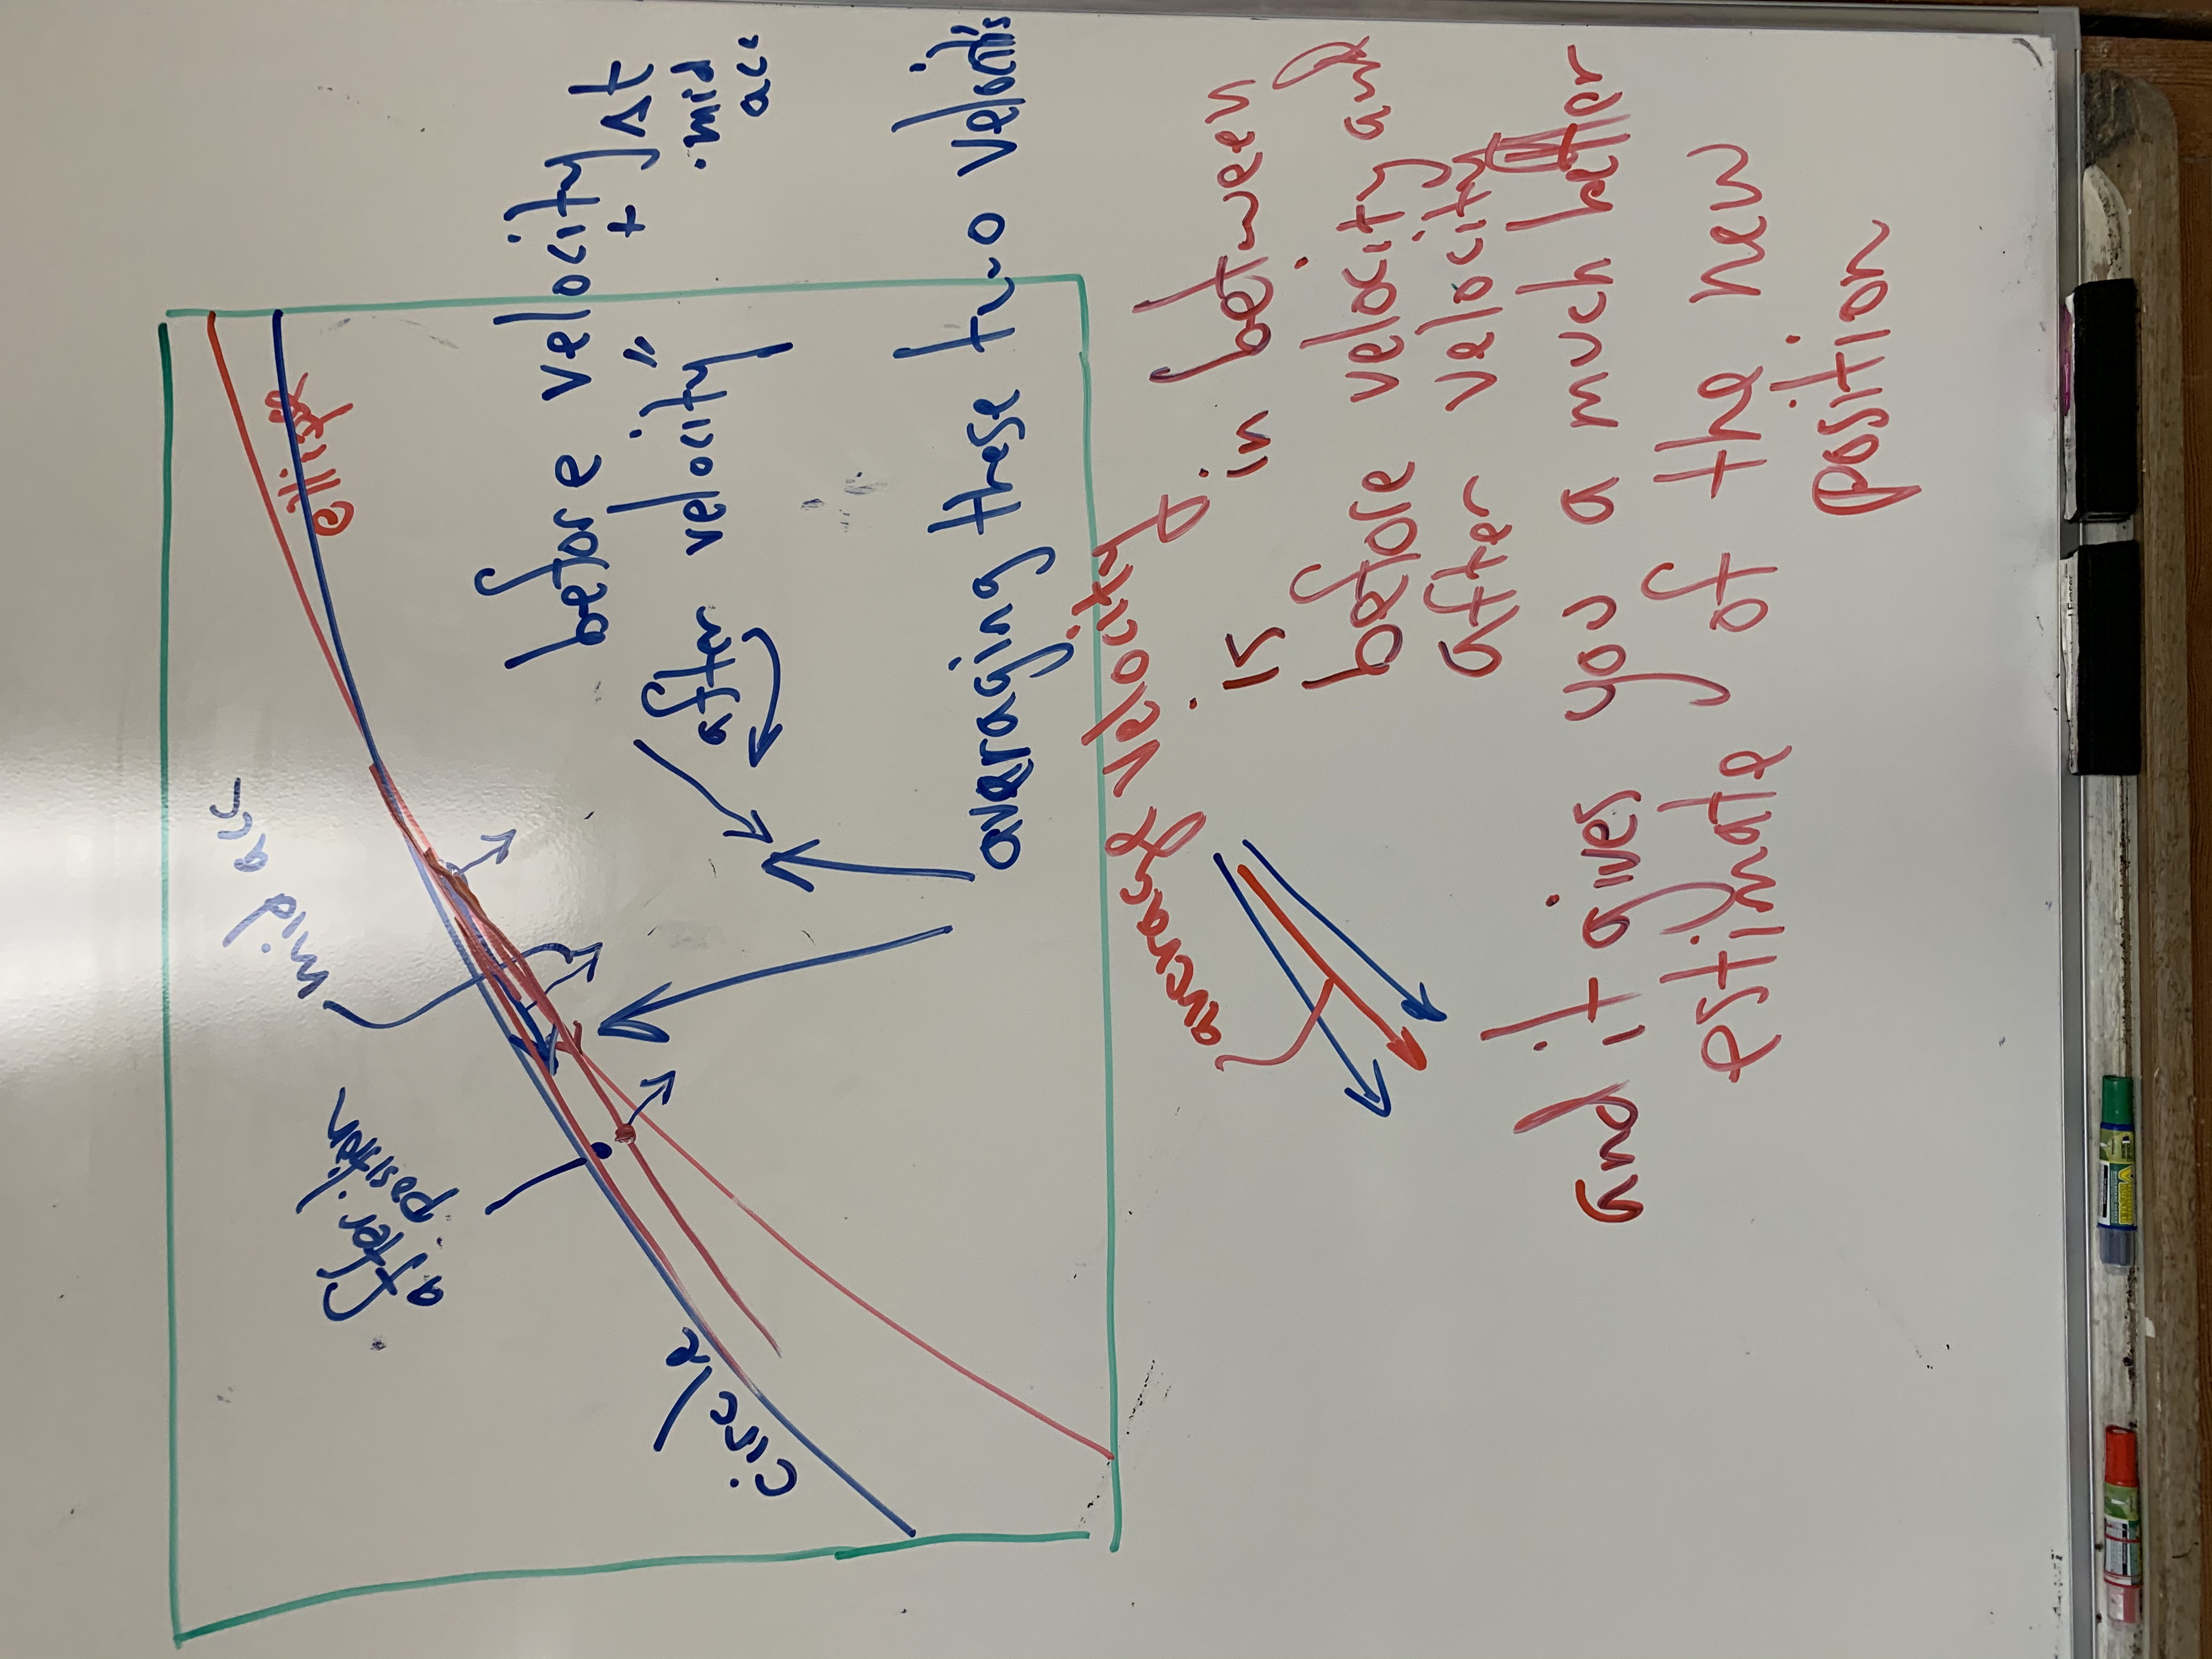 mid acc
after
position
ellipse
circle
before velocity
+ Δt
after velocity"
·mid
acc
averaging these two velocities
average velocity
is in between
before velocity and
after velocity
and it gives you a much better
estimate of the new
position